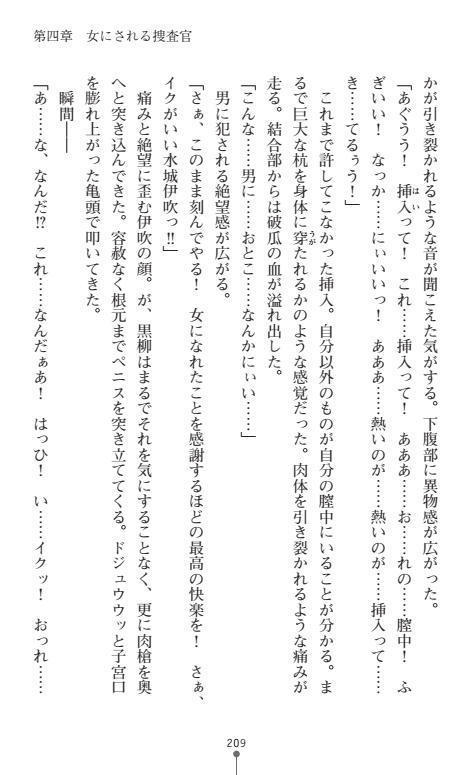 第四章　女にされる捜査官
かが引き裂かれるような音が聞こえた気がする。下腹部に異物感が広がった。
「あぐうう！　挿入って！　これ……挿入って！　あああ……お……れの……膣中！　ふ
ぎいい！　なっか……にぃいいっ！　あああ……熱いのが……熱いのが……挿入って……
き……てるぅう！」
　これまで許してこなかった挿入。自分以外のものが自分の膣中にいることが分かる。ま
るで巨大な杭を身体に穿たれるかのような感覚だった。肉体を引き裂かれるような痛みが
走る。結合部からは破瓜の血が溢れ出した。
「こんな……男に……おとこ……なんかにぃい……」
　男に犯される絶望感が広がる。
「さぁ、このまま刻んでやる！　女になれたことを感謝するほどの最高の快楽を！　さぁ、
イクがいい水城伊吹っ!!」
　痛みと絶望に歪む伊吹の顔。が、黒柳はまるでそれを気にすることなく、更に肉槍を奥
へと突き込んできた。容赦なく根元までペニスを突き立ててくる。ドジュウウッと子宮口
を膨れ上がった亀頭で叩いてきた。
　瞬間――
「あ……な、なんだ!?　これ……なんだぁあ！　はっひ！　い……イクッ！　おっれ……
209